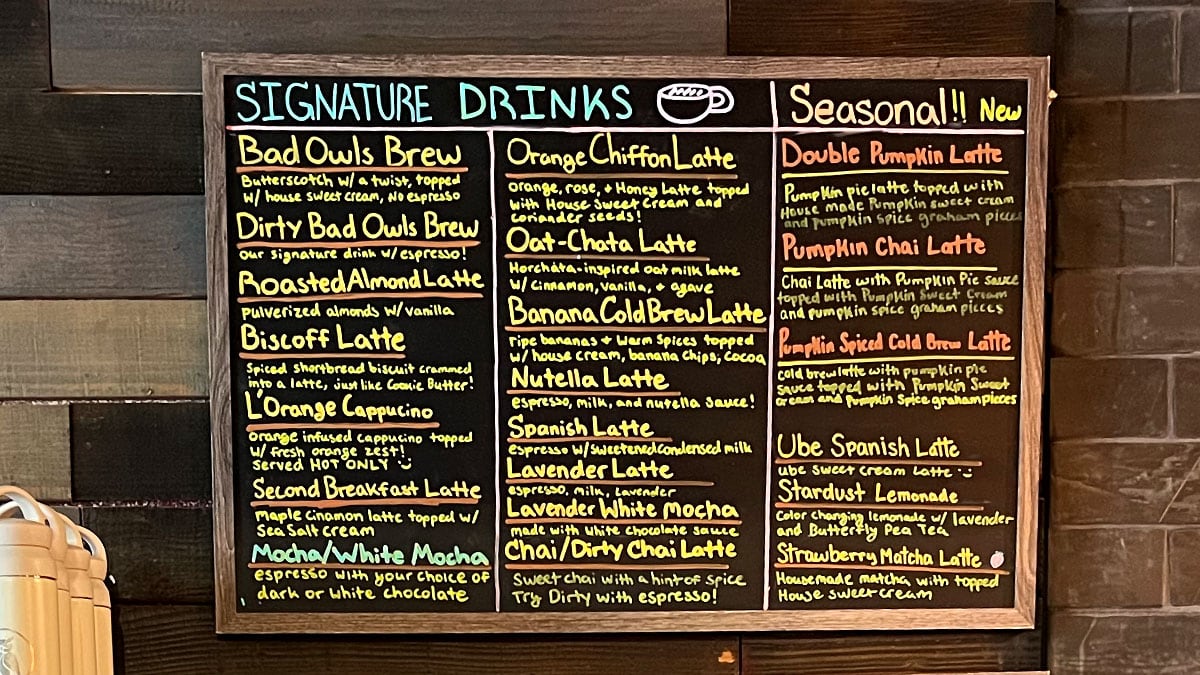 SIGNATURE DRINKS
Bad Owls Brew
Butterscotch w/ a twist, topped
w/ house sweet cream, No espresso
Dirty Bad Owls Brew
our signature drink w/ espresso!
Roasted Almond Latte
pulverized almonds w/ vanilla
Biscoff Latte
Spiced shortbread biscuit crammed
into a latte, just like Cookie Butter!
L'Orange Cappucino
orange infused cappucino topped
w/ fresh orange zest!
Served HOT ONLY
Second Breakfast Latte
Maple Cinamon latte topped w/
Sea Salt cream
Mocha/White Mocha
espresso with your choice of
dark or white chocolate
Orange Chiffon Latte
orange, rose, + Honey Latte topped
with House Sweet Cream and
coriander seeds!
Oat-Chata Latte
Horchata-inspired oat milk latte
w/ cinnamon, vanilla, + agave
Banana Cold Brew Latte
ripe bananas + warm spices topped
w/ house cream, banana chips, cocoa
Nutella Latte
espresso, milk, and nutella sauce!
Spanish Latte
espresso w/ sweetened condensed milk
Lavender Latte
espresso, milk, Lavender
Lavender White Mocha
made with white chocolate sauce
Chai/Dirty Chai Latte
Sweet chai with a hint of spice
Try Dirty with espresso!
Seasonal!! New
Double Pumpkin Latte
Pumpkin pie latte topped with
House made Pumpkin sweet cream
and pumpkin spice graham pieces
Pumpkin Chai Latte
Chai Latte with Pumpkin Pie sauce
topped with Pumpkin Sweet Cream
and pumpkin spice graham pieces
Pumpkin Spiced Cold Brew Latte
cold brew latte with pumpkin pie
sauce topped with Pumpkin Sweet
cream and Pumpkin Spice graham pieces
Ube Spanish Latte
ube sweet cream latte
Stardust Lemonade
Color changing lemonade w/ lavender
and Butterfly Pea Tea
Strawberry Matcha Latte
Housemade matcha with topped
House sweet cream